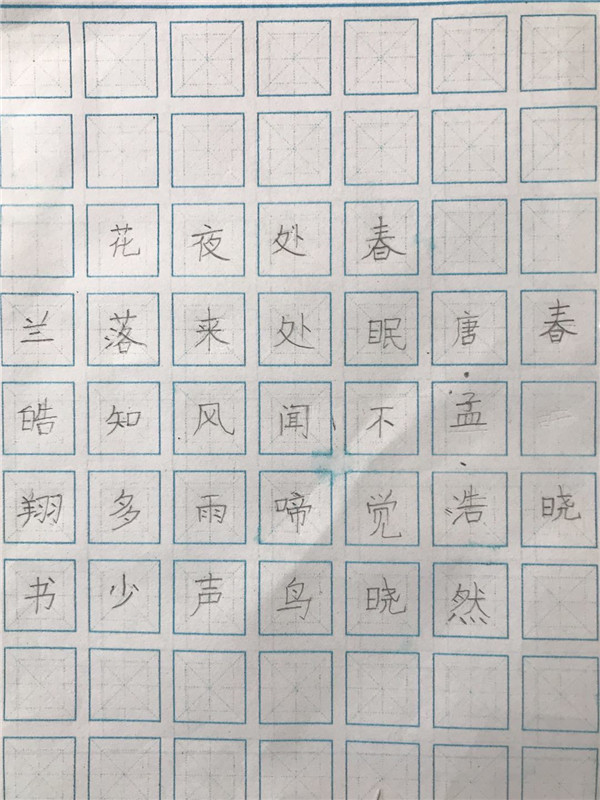 春晓
唐·孟浩然
春眠不觉晓
处处闻啼鸟
夜来风雨声
花落知多少
兰皓翔书